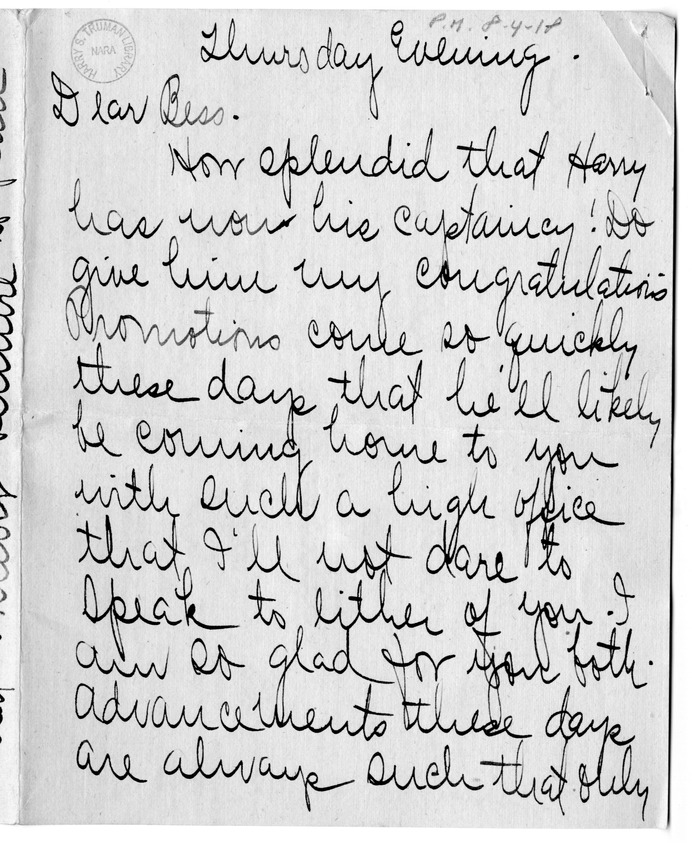 P.M. 8-4-18
HARRY S. TRUMAN LIBRARY
NARA
Thursday Evening.
Dear Bess.
How splendid that Harry
has won his captaincy! Do
give him my congratulations
Promotions come so quickly
these days that he'll likely
be coming home to you
with such a high office
that I'll not dare to
speak to either of you. I
am so glad for you both.
Advancements these days
are always such that only